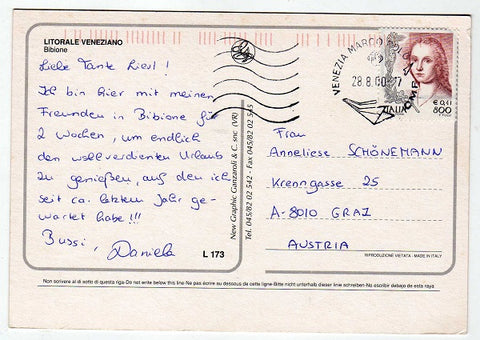 LITORALE VENEZIANO
Bibione
Liebe Tante Liesl!
Ich bin hier mit meinen
Freunden in Bibione für
2 Wochen, um endlich
den wohlverdienten Urlaub
zu genießen, auf den ich
seit ca. letztem Jahr ge-
wartet habe!!!
Bussi,
Daniela
L 173
New Graphic Ganzaroli & C. snc (VR)
Tel. 045/82 02 542 - Fax 045/82 02 545
VENEZIA MARCO
28.8.00-17
CMP
ITALIA
€ 0,41
800
Frau
Anneliese SCHÖNEMANN
Krenngasse 25
A-8010 GRAZ
AUSTRIA
RIPRODUZIONE VIETATA - MADE IN ITALY
Non scrivere al di sotto di questa riga-Do not write below this line-Ne pas écrire au dessous de cette ligne-Bitte nicht unterhalb dieser linie schreiben-No escribir debajo de esta raya